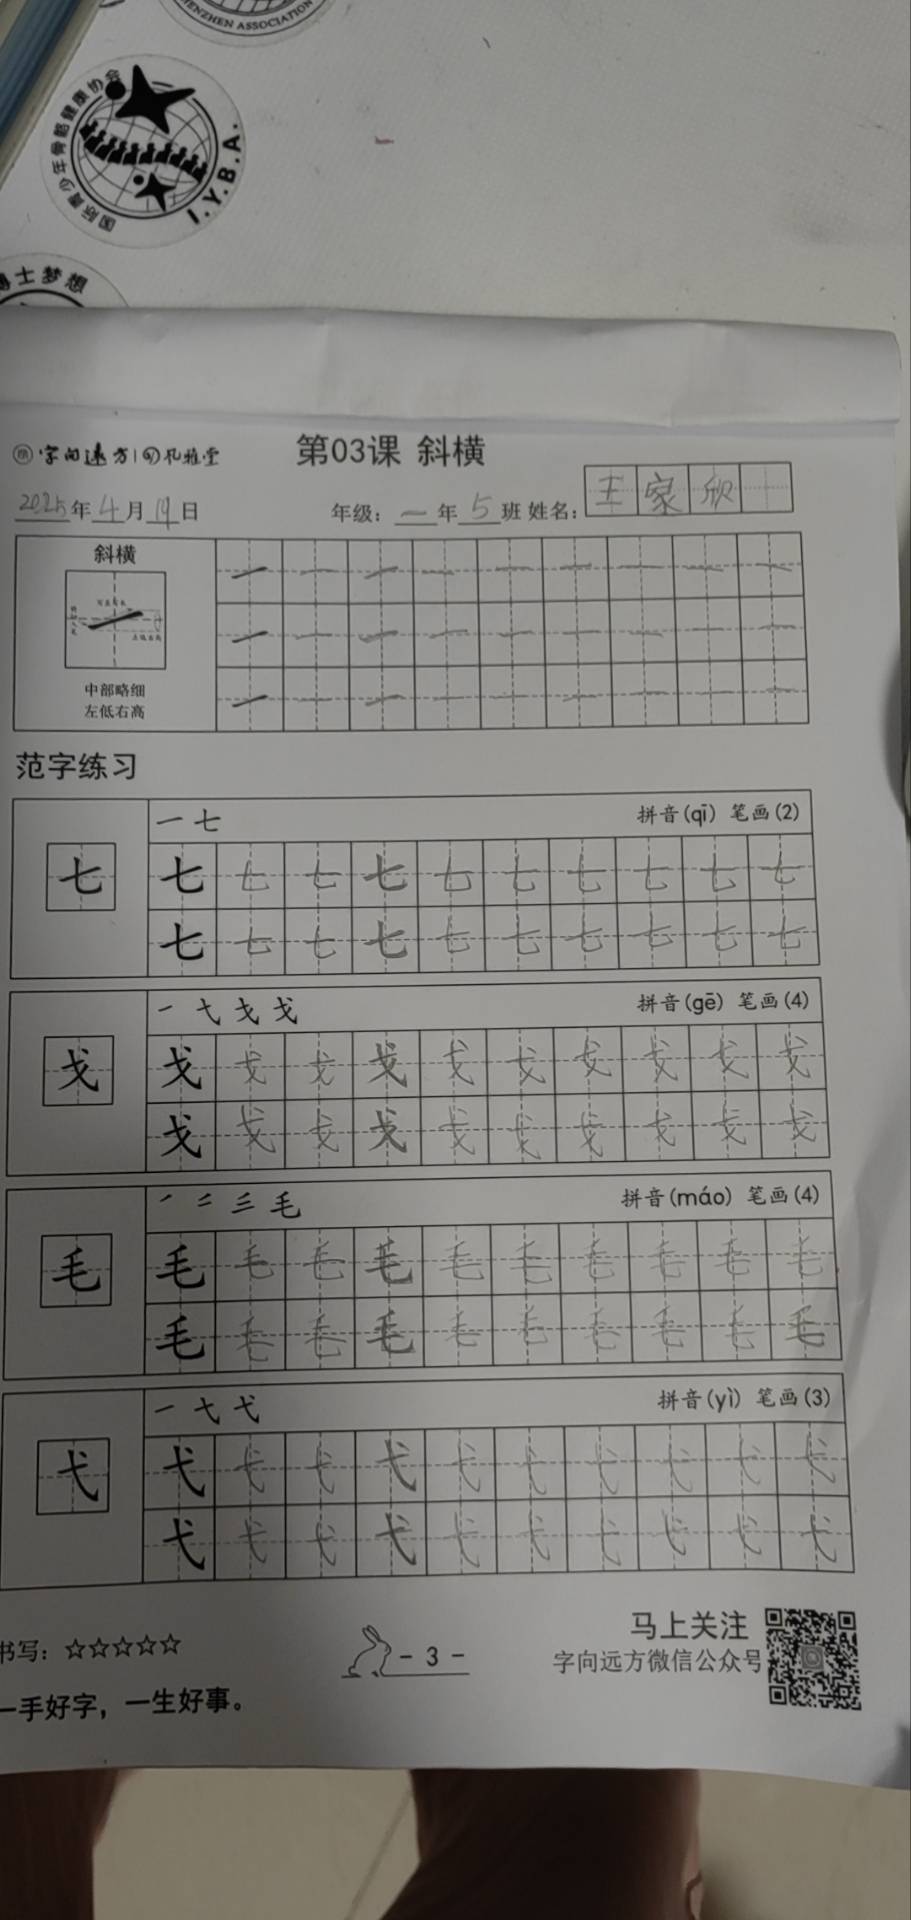 SHENZHEN ASSOCIATION
国际青少年骨骼健康协会
I.Y.B.A.
博士梦想
字向远方
第03课 斜横
2025年4月19日 年级：一年5班 姓名：王家欣
斜横
中部略细
左低右高
范字练习
一 七 拼音(qī) 笔画(2)
七 七 七 七 七 七 七 七 七 七 七
七 七 七 七 七 七 七 七 七 七
拼音(gē) 笔画(4)
戈 戈 戈 戈 戈 戈 戈 戈 戈 戈 戈
戈 戈 戈 戈 戈 戈 戈 戈 戈 戈
毛 拼音(máo) 笔画(4)
毛 毛 毛 毛 毛 毛 毛 毛 毛 毛 毛
毛 毛 毛 毛 毛 毛 毛 毛 毛 毛
一 弋 拼音(yì) 笔画(3)
弋 弋 弋 弋 弋 弋 弋 弋 弋 弋 弋
弋 弋 弋 弋 弋 弋 弋 弋 弋 弋
书写：☆☆☆☆☆
- 3 -
马上关注
字向远方微信公众号
一手好字，一生好事。